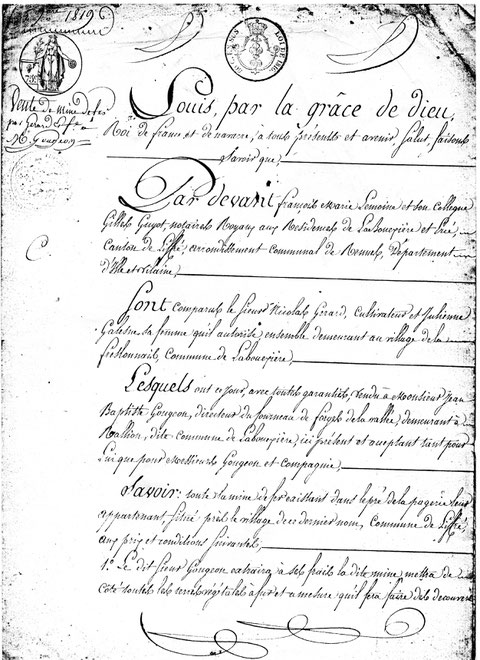 1819
Vente de mine de fer
par Gerard & fe à
Mr Gougeon
Louis, par la grâce de dieu,
Roi de france et de navarre, a tous présents et avenir, Salut, faisons
Savoir que,
Par devant françois Marie Lemoine et son Collegue
Gilles Guyot, notaires Royaux aux Residences de Labouexiere et Liré,
Canton de Liffré, arrondissement communal de Rennes, Département
d'Ille et vilaine,
Sont comparus le Sieur Nicolas Gerard, Cultivateur et Julienne
Galesne sa femme qu'il autorise, ensemble demeurant au village de la
Commune de Labouexière,
Lesquels ont ce jour, avec toutes garanties, vendu à Monsieur Jean
Baptiste Gougeon, directeur du fourneau de forges de la vallée, demeurant à
dite commune de Labouexière, ici présent et acceptant tant pour
Lui que pour Messieurs Gougeon et Compagnie,
Savoir: toute la mine de fer existant dans le pré de la pagerie leur
appartenant, situé près le village de ce dernier nom, Commune de Liffré,
aux prix et conditions suivantes,
1.° Le dit Sieur Gougeon extraira à ses frais la dite mine, mettra de
coté toutes les terres végétales à fur et a mesure qu'il fera faire des decouvertes